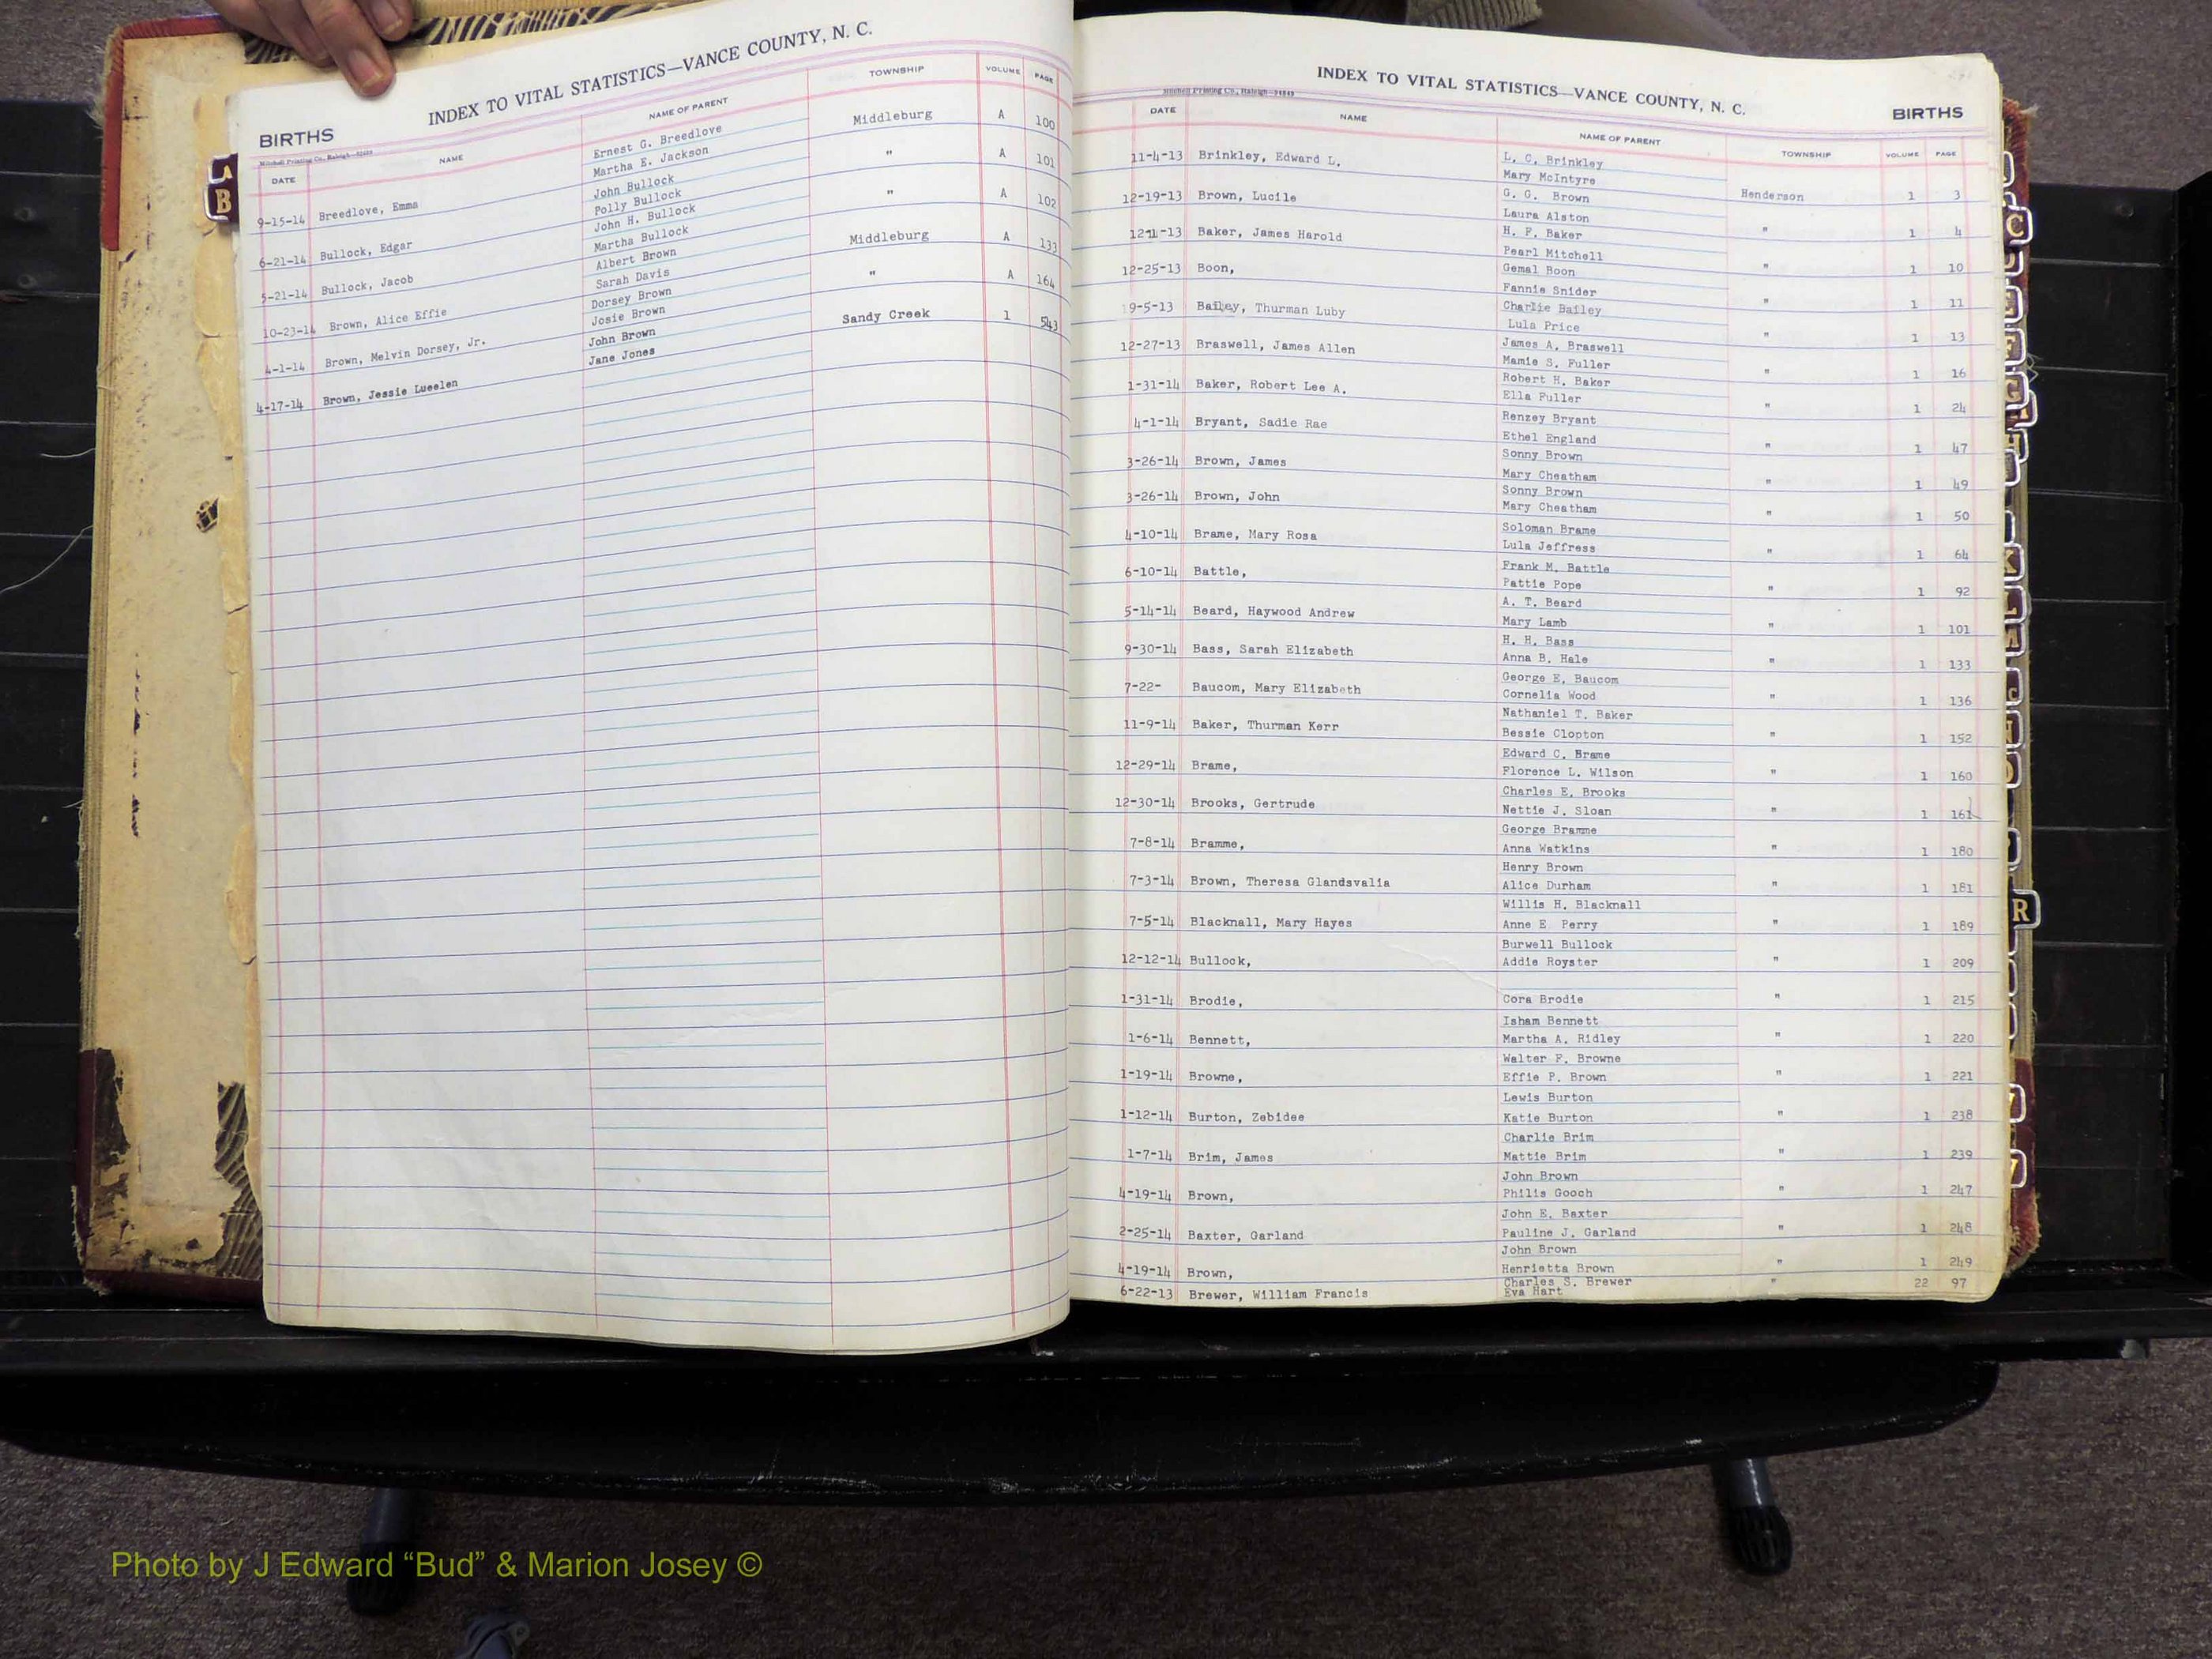 INDEX TO VITAL STATISTICS—VANCE COUNTY, N. C.
BIRTHS
Mitchell Printing Co., Raleigh
DATE NAME NAME OF PARENT TOWNSHIP VOLUME PAGE
9-15-14 Breedlove, Emma Ernest G. Breedlove Middleburg A 100
Martha E. Jackson
6-21-14 Bullock, Edgar John Bullock " A 101
Polly Bullock
5-21-14 Bullock, Jacob John H. Bullock " A 102
Martha Bullock
10-23-14 Brown, Alice Effie Albert Brown Middleburg A 133
Sarah Davis
4-1-14 Brown, Melvin Dorsey, Jr. Dorsey Brown " A 164
Josie Brown
4-17-14 Brown, Jessie Lueelen John Brown Sandy Creek 1 543
Jane Jones
INDEX TO VITAL STATISTICS—VANCE COUNTY, N. C.
BIRTHS
Mitchell Printing Co., Raleigh
DATE NAME NAME OF PARENT TOWNSHIP VOLUME PAGE
11-4-13 Brinkley, Edward L. L. C. Brinkley
Mary McIntyre Henderson 1 3
12-19-13 Brown, Lucile G. G. Brown
Laura Alston " 1 4
Baker, James Harold H. F. Baker
Pearl Mitchell " 1 10
12-25-13 Boon, Gemal Boon
Fannie Snider " 1 11
9-5-13 Bailey, Thurman Luby Charlie Bailey
Lula Price " 1 13
12-27-13 Braswell, James Allen James A. Braswell
Mamie S. Fuller " 1 16
1-31-14 Baker, Robert Lee A. Robert H. Baker
Ella Fuller " 1 24
4-1-14 Bryant, Sadie Rae Renzey Bryant
Ethel England " 1 47
3-26-14 Brown, James Sonny Brown
Mary Cheatham " 1 49
3-26-14 Brown, John Sonny Brown
Mary Cheatham " 1 50
4-10-14 Brame, Mary Rosa Soloman Brame
Lula Jeffress " 1 64
6-10-14 Battle, Frank M. Battle
Pattie Pope " 1 92
5-14-14 Beard, Haywood Andrew A. T. Beard
Mary Lamb " 1 101
9-30-14 Bass, Sarah Elizabeth H. H. Bass
Anna B. Hale " 1 133
7-22- Baucom, Mary Elizabeth George E. Baucom
Cornelia Wood " 1 136
11-9-14 Baker, Thurman Kerr Nathaniel T. Baker
Bessie Clopton " 1 152
12-29-14 Brame, Edward C. Brame
Florence L. Wilson " 1 160
12-30-14 Brooks, Gertrude Charles E. Brooks
Nettie J. Sloan " 1 161
7-8-14 Bramme, George Bramme
Anna Watkins " 1 180
7-3-14 Brown, Theresa Glandsvalia Henry Brown
Alice Durham " 1 181
7-5-14 Blacknall, Mary Hayes Willis H. Blacknall
Anne E Perry " 1 189
12-12-14 Bullock, Burwell Bullock
Addie Royster " 1 209
1-31-14 Brodie, Cora Brodie " 1 215
1-6-14 Bennett, Isham Bennett
Martha A. Ridley " 1 220
1-19-14 Browne, Walter F. Browne
Effie P. Brown " 1 221
1-12-14 Burton, Zebidee Lewis Burton
Katie Burton " 1 238
1-7-14 Brim, James Charlie Brim
Mattie Brim " 1 239
4-19-14 Brown, John Brown
Philis Gooch " 1 247
2-25-14 Baxter, Garland John E. Baxter
Pauline J. Garland " 1 248
4-19-14 Brown, John Brown
Henrietta Brown " 1 249
6-22-13 Brewer, William Francis Charles S. Brewer " 22 97
Eva Hart
A
B
C
F
G
H
K
L
R
Photo by J Edward “Bud” & Marion Josey ©